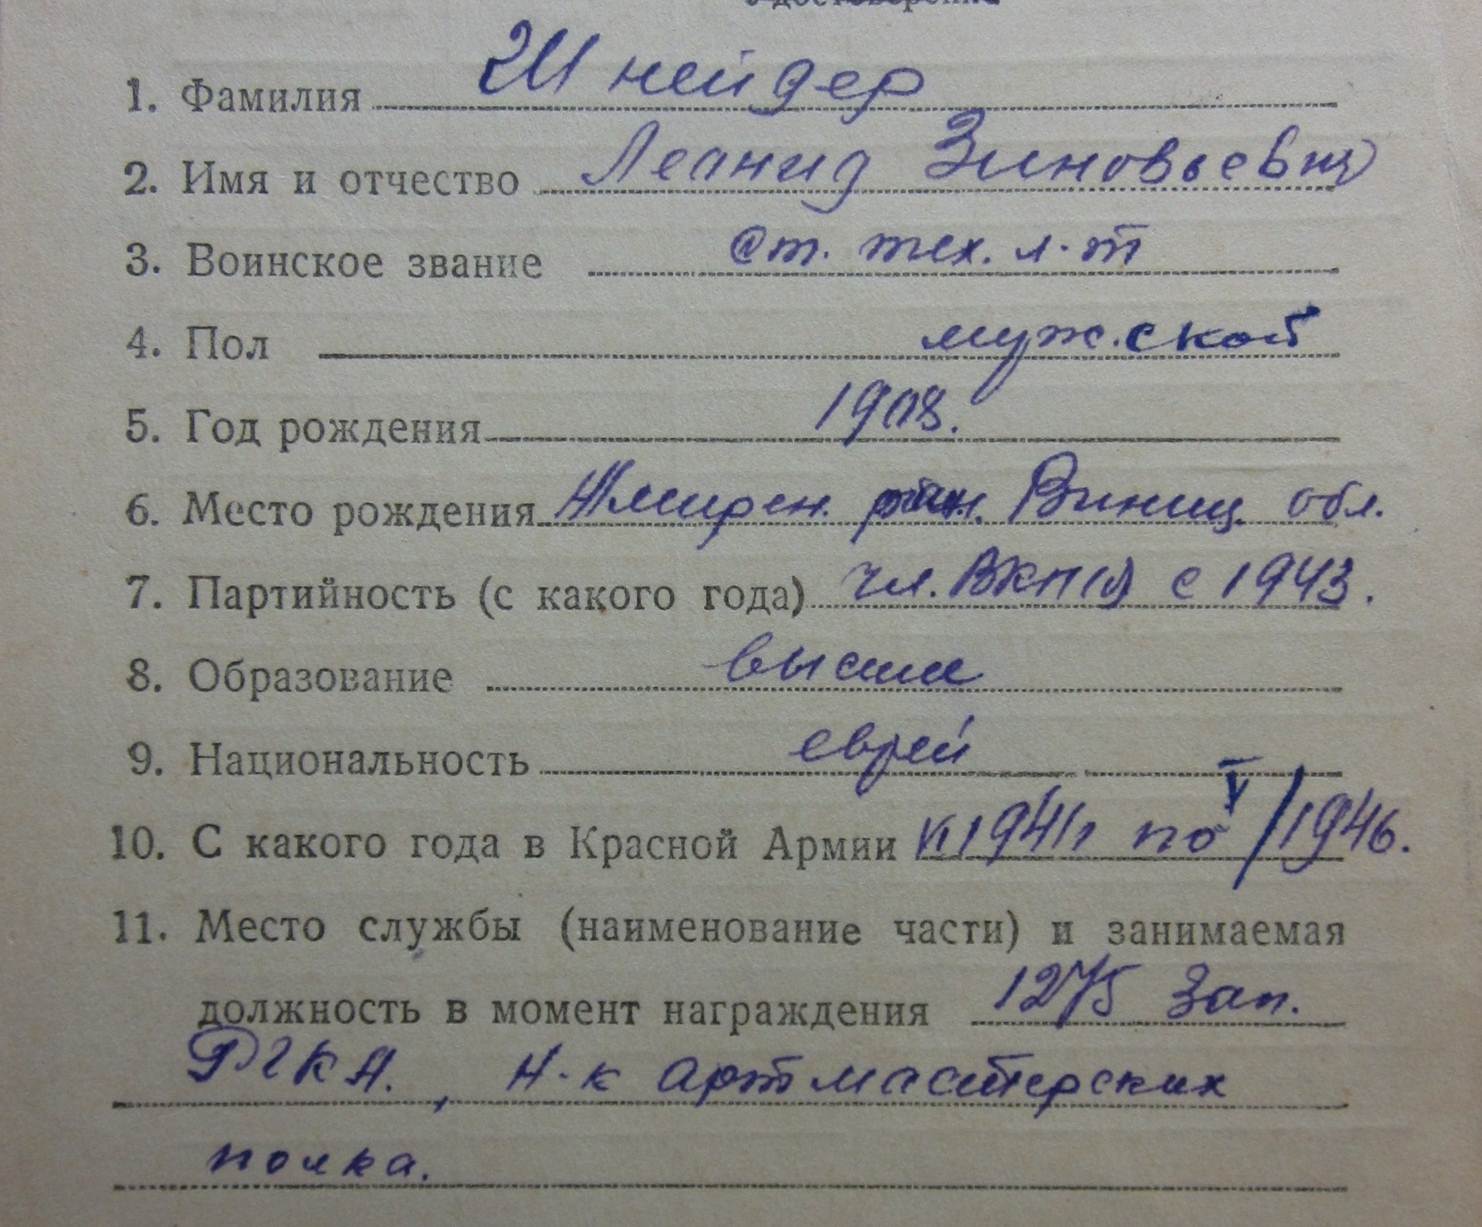 1. Фамилия Шнейдер
2. Имя и отчество Леонид Зиновьевич
3. Воинское звание Ст. тех. л-т
4. Пол мужской
5. Год рождения 1908.
6. Место рождения Жмерен. район. Виниц. обл.
7. Партийность (с какого года) чл. ВКП(б) с 1943.
8. Образование высшее
9. Национальность еврей
10. С какого года в Красной Армии 1941 по V/1946.
11. Место службы (наименование части) и занимаемая
должность в момент награждения 1275 Зап.
Н-к артмастерских
полка.